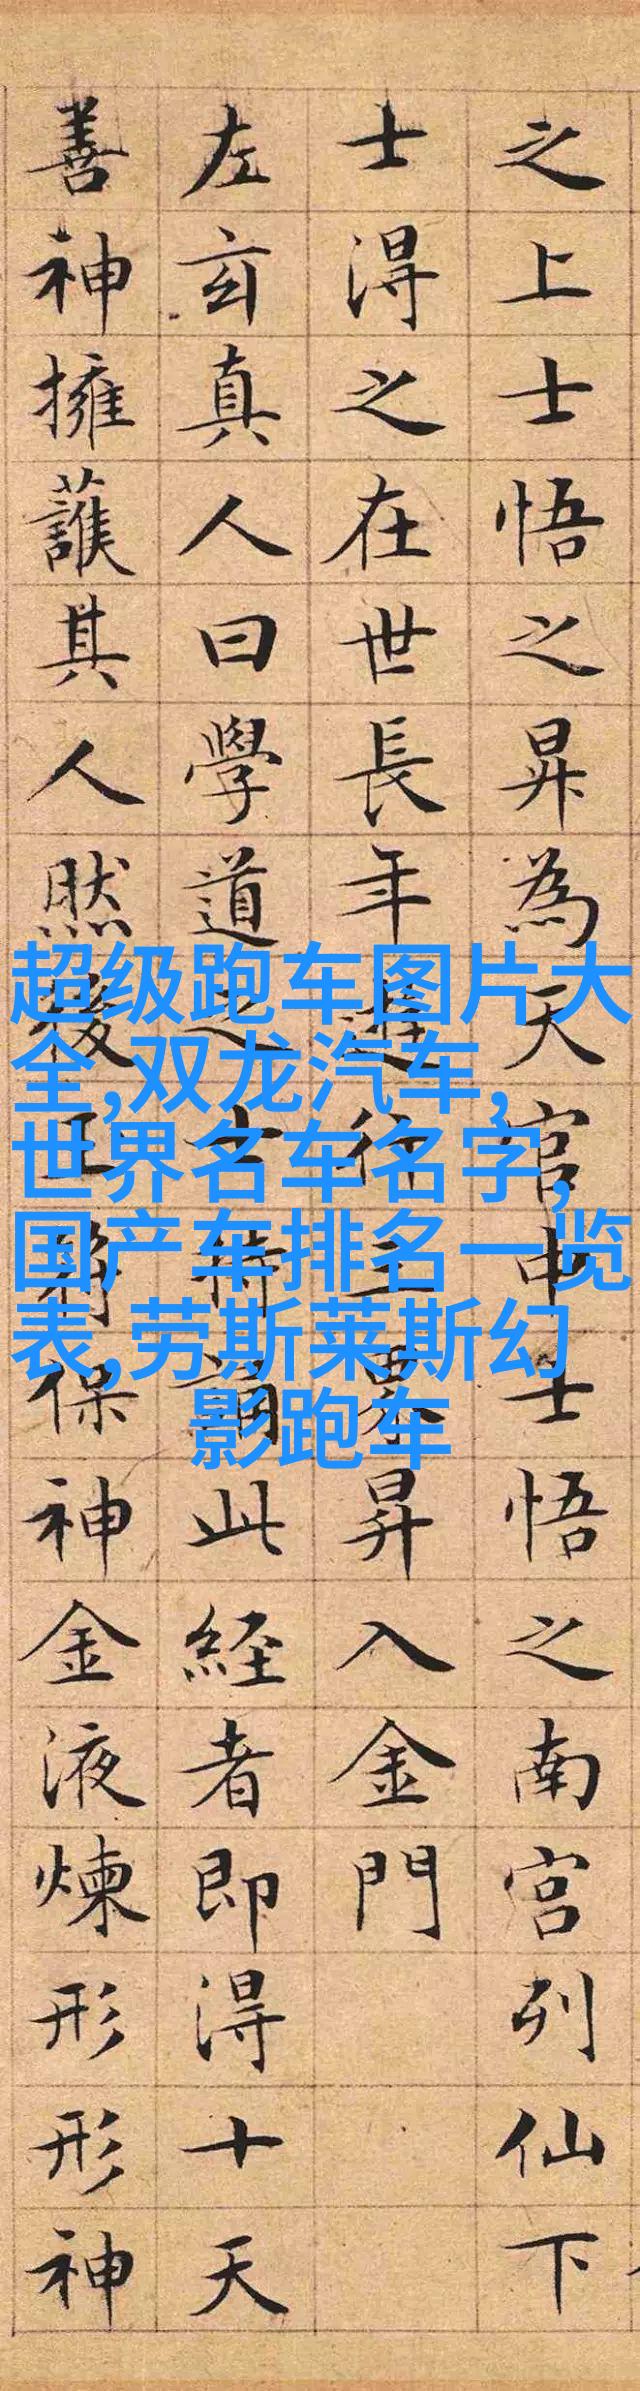 之上士悟之昇為天官中士悟之南宮列仙下
士得之在世長年遊行三界昇入金門
左玄真人曰學道之士持誦此経者即得十天
善神擁護其人然後玉符保神金液煉形形神
超级跑车图片大
全,双龙汽车,
世界名车名字,
国产车排名一览
表,劳斯莱斯幻
影跑车